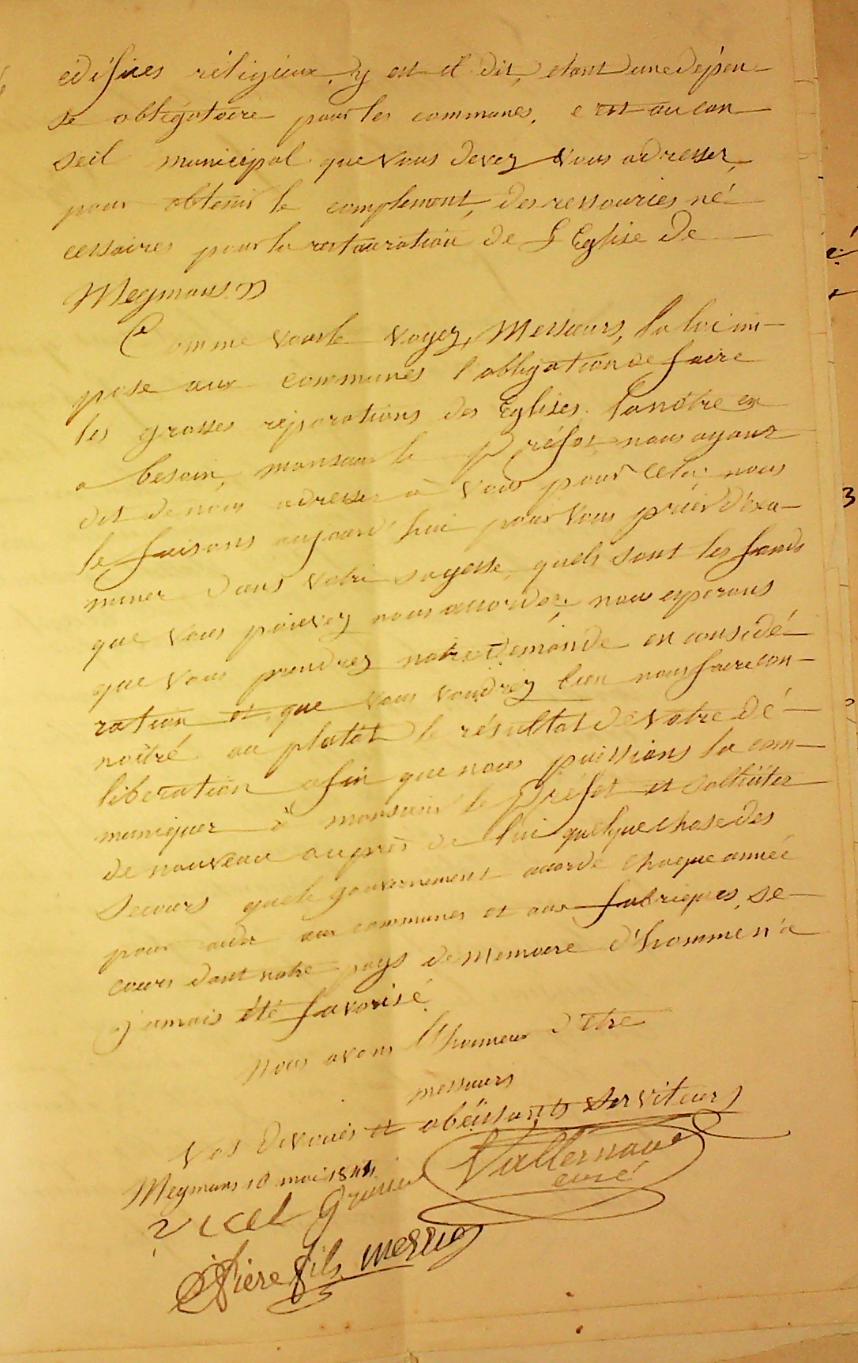 édifices réligieux, y est il dit, etant une dépen-
se obligatoire pour les communes, c'est au con
seil municipal que vous devez vous adresser,
pour obtenir le complement, des ressources né-
cessaires pour la restauration de L'Eglise de
Meymans »
Comme vous le voyez, Messieurs, la loi im-
pose aux communes l'obligation de faire
les grosses réparations des Eglises. la nôtre en
a besoin, monsieur le Préfet nous ayant
dit de nous adresser à vous pour cela; nous
le faisons aujourd'hui pour vous prier d'exa-
miner dans votre sagesse, quels sont les fonds
que vous pouvez nous accorder; nous esperons
que vous prendrez notre demande en considé-
ration et que vous voudrez bien nous faire con-
noître au plutot le résultat de votre dé-
libération afin que nous puissions la com-
muniquer à monsieur le Préfet et solliciter
de nouveau auprès de lui quelque chose des
secours que le gouvernement accorde chaque année
pour aider aux communes et aux fabriques, se-
cours dont notre pays de memoire d'homme n'a
jamais été favorisé.
Nous avons l'honneur d'être
messieurs
Vos dévoués et obéissants serviteurs
Meymans 10 mai
Vallernaud
curé
fils